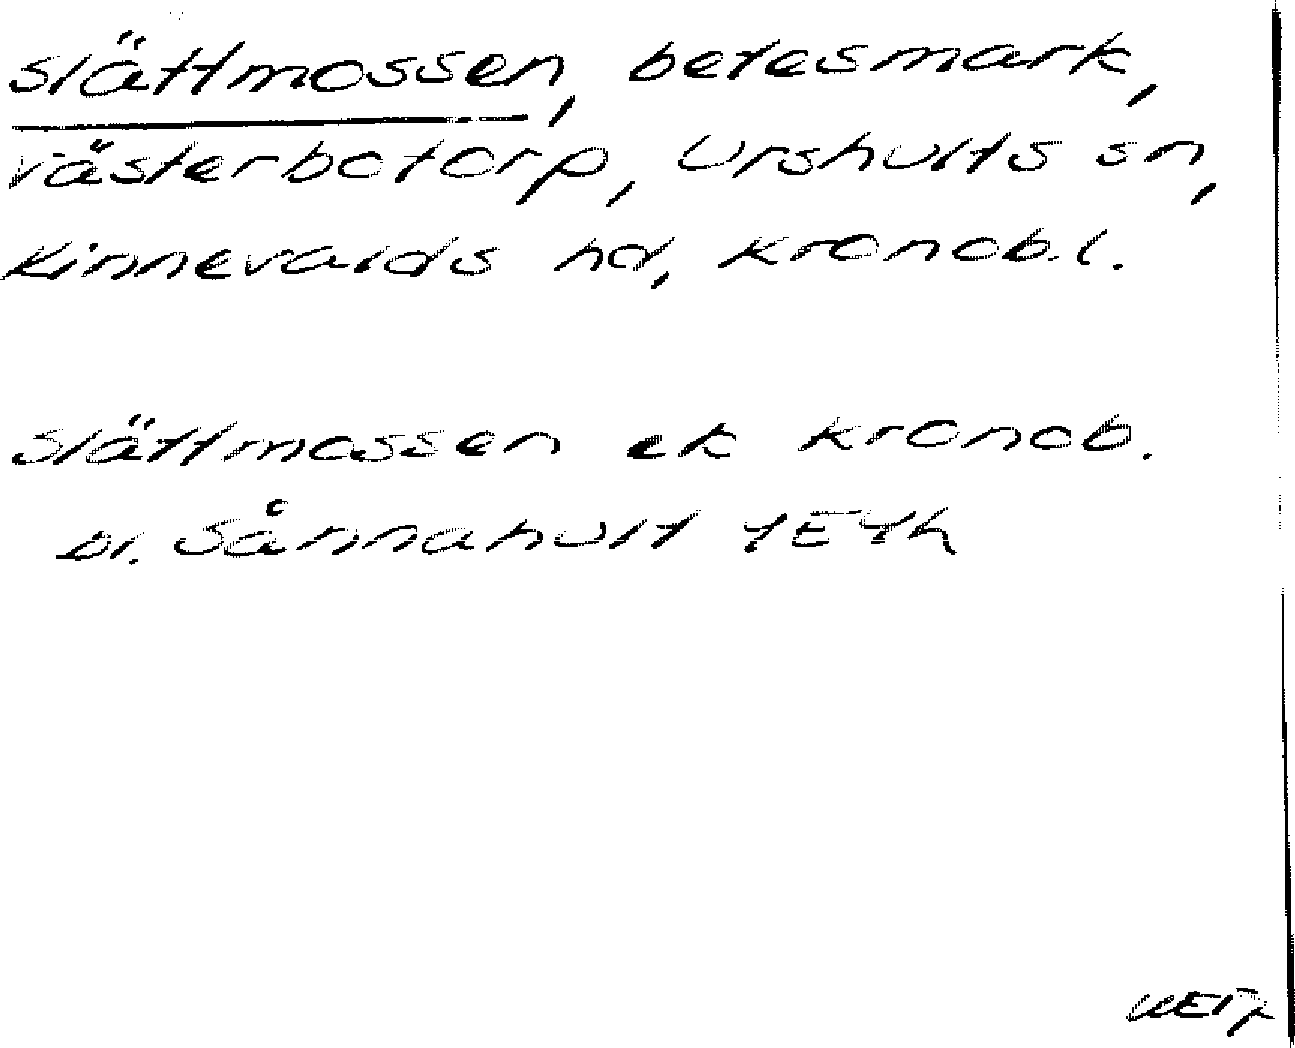 Slättmossen, betesmark,
Västerbotorp, Urshults sn,
Kinnevalds hd, Kronob.l.
Slättmossen ek Kronob.
bl. Sånnahult 4E4h